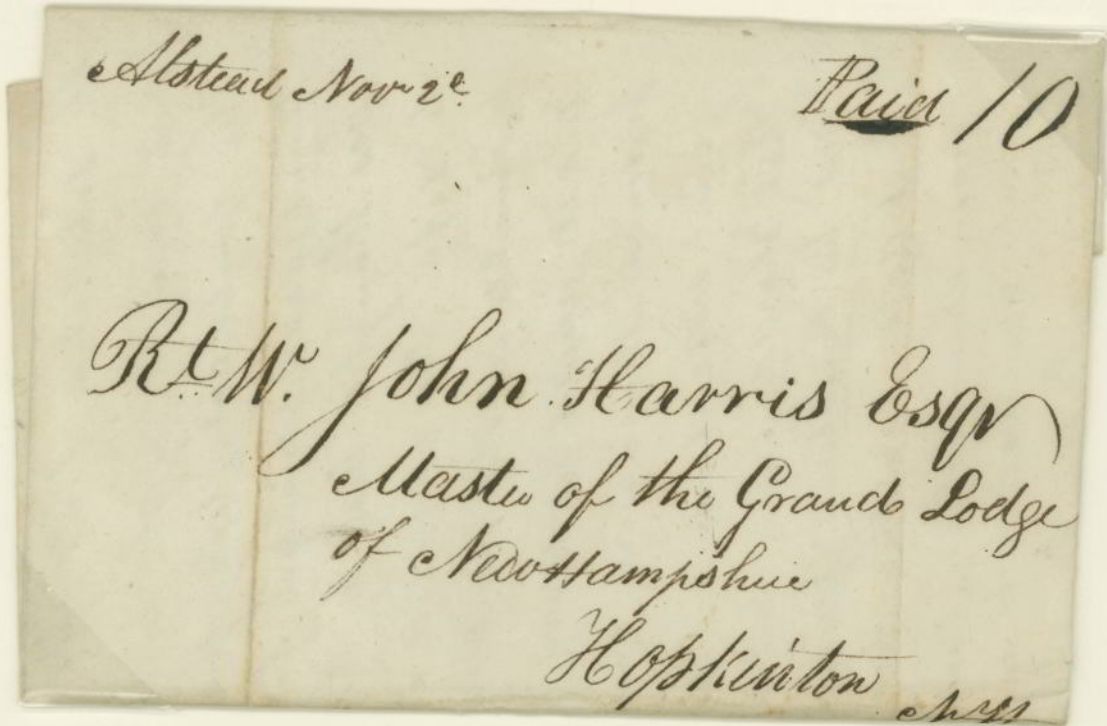 Alstead Nov 2e
Paid 10
Rt. W. John Harris Esqr
Master of the Grand Lodge
of New Hampshire
Hopkinton
N H